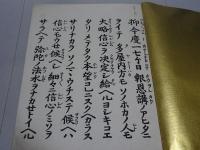 抑今度一七ケ日報恩講ノアヒタニ
ヲイテ多屋内方モソノホカノ人モ
大略信心ヲ決定シ給ヘルヨシキコエ
タリメテタク本望コレニスクヘカラス
サリナカラソノママウチステ候ヘハ
信心モウセ候ヘシ細々ニ信心ノミソヲ
サラヘテ弥陀ノ法水ヲナカセトイヘル